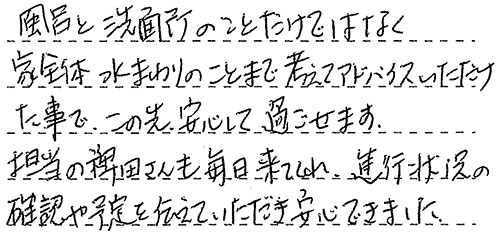 風呂と洗面所のことだけではなく
家全体水まわりのことまで考えてアドバイスいただけ
た事で、この先、安心して過ごせます。
担当の稗田さんも毎日来てくれ、進行状況の
確認や予定を伝えていただき安心できました。